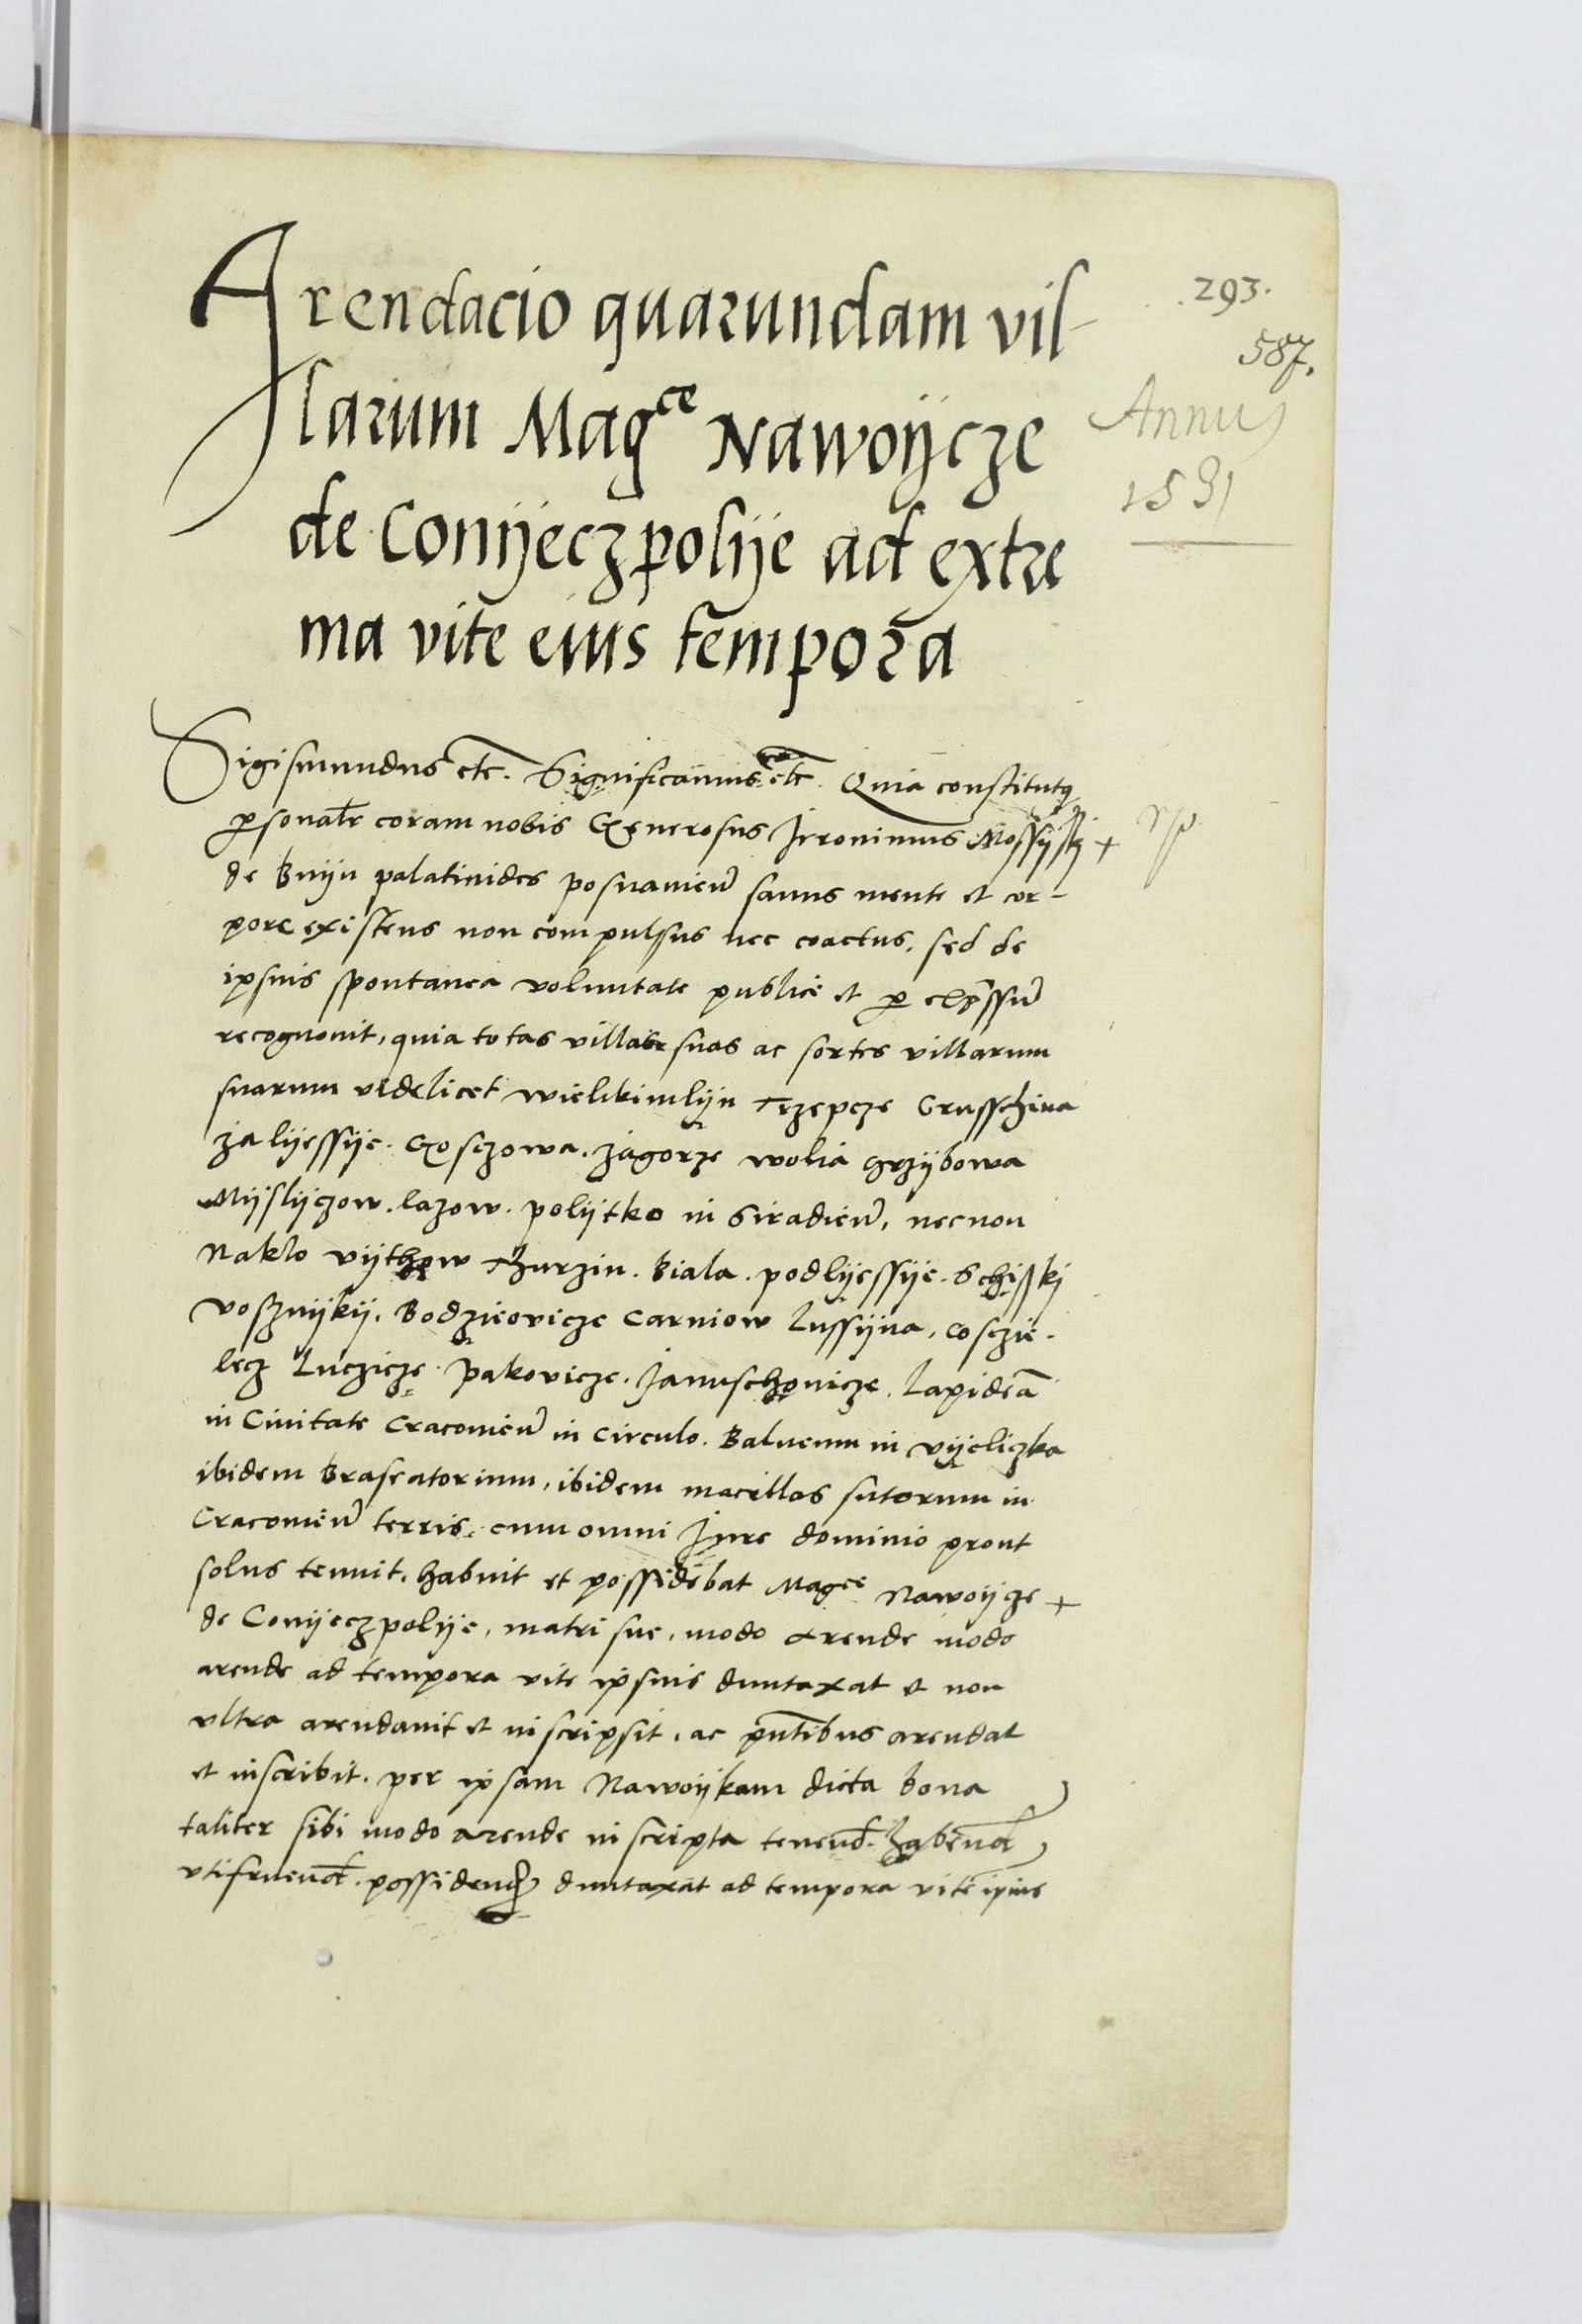 Arendacio quarundam vil-
larum Mag^ce Nawoÿcze
de Conÿeczpolÿe ad extre
ma vite eius tempora
.293.
587.
Annus
1531
Sigismundus etc. Significamus etc. Quia constitutus
personalr coram nobis Generosus Jeronimus Mossÿskj +
de Bnÿn palatinides posnanien sanus mente et cor-
pore existens non compulsus nec coactus, sed de
ipsius spontanea voluntate publice et per expressum
recognovit, quia totas villas suas ac sortes villarum
suarum videlicet wielkimlÿn Trzepcze Grusschina
zalÿessÿe. Gosczowa. zagorze wolia grzÿbowa
Mÿslÿczow. lazow. polÿtko in Siradien, necnon
Naklo vÿthow Thurzin. Biala. podlÿessÿe. Schisskj
vosznÿkÿ. Bodzieovicze Carniow Lussÿna, Cosczie-
lecz Luczicze. pakovicze. Januschovicze. Lapidea
in Civitate Cracovien in Circulo. Balneum in vÿeliczka
ibidem Braseatorium, ibidem macellas sutorum in
Cracovien terris. cum omni Jure dominio prout
solus tenuit. habuit et possidebat Mag^ce Nawoÿcze +
de Conÿeczpolÿe, matri sue, modo arende modo
arende ad tempora vite ipsius duntaxat et non
ultra arendavit et inscripsit. ac pntibus arendat
et inscribit. per ipsam Nawoÿkam dicta bona
taliter sibi modo arende inscripta tenend. habend
utifruend. possidend duntaxat ad tempora vite ipius